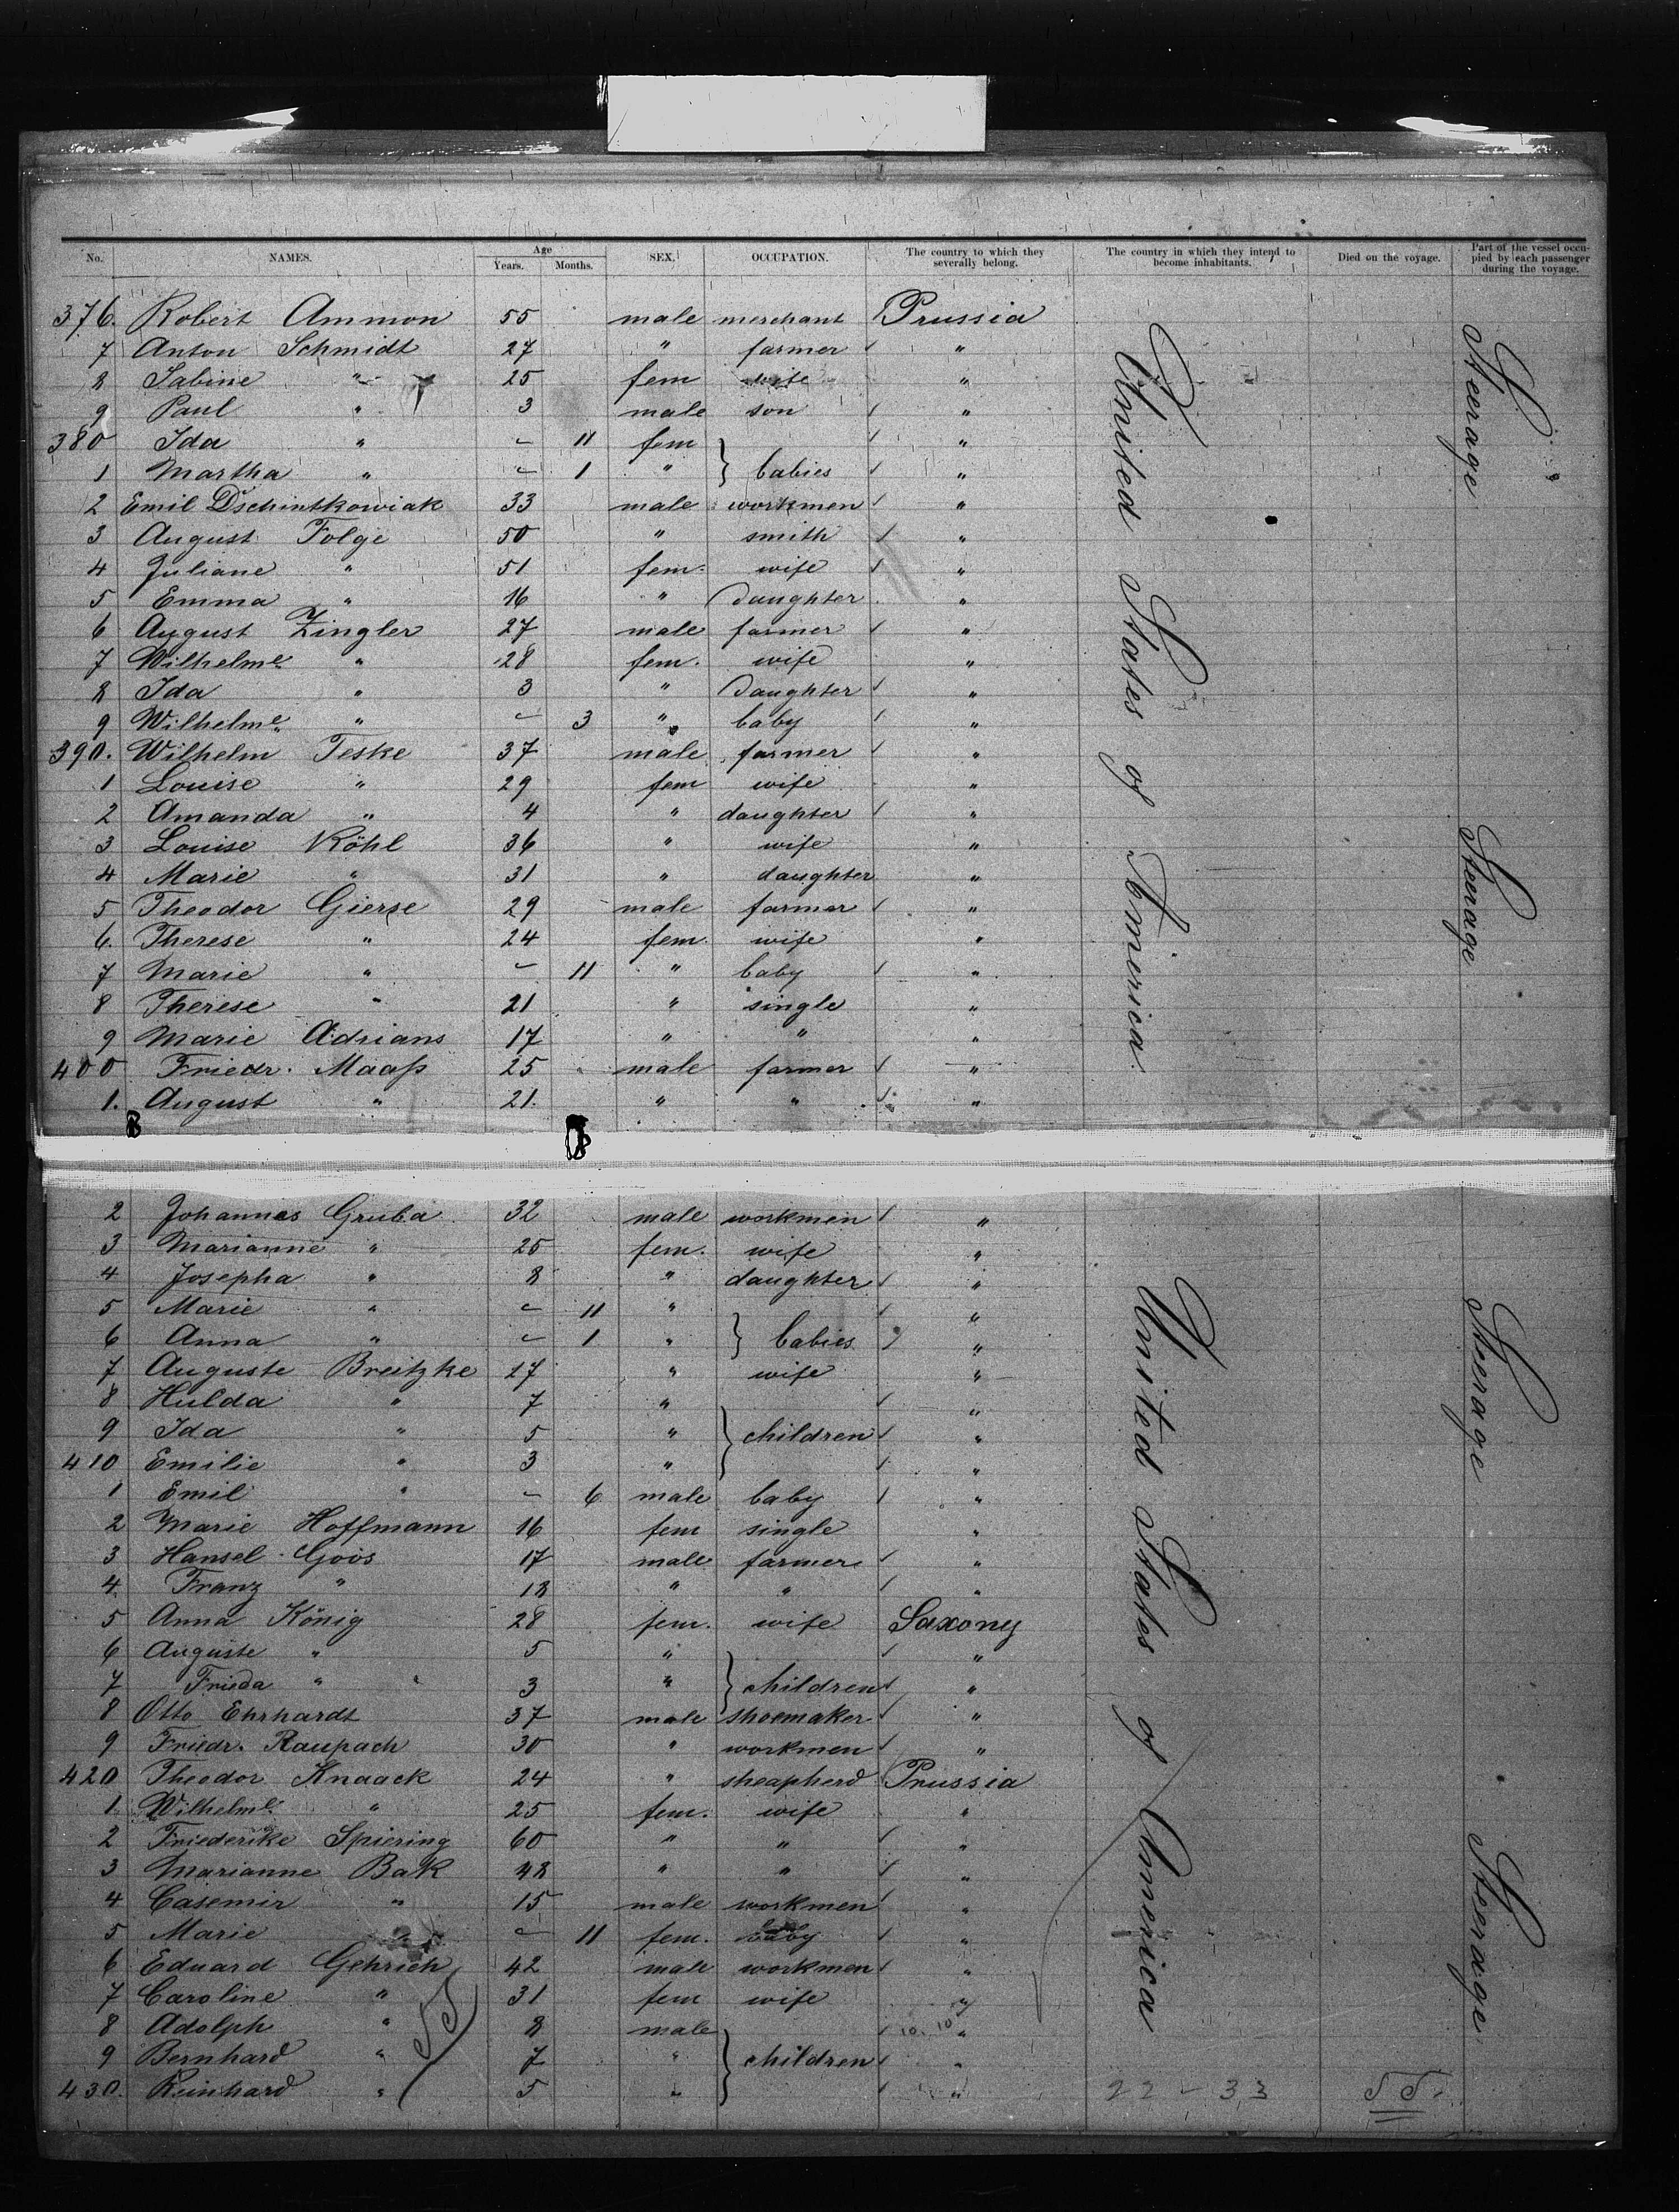 No. NAMES. Age Years. Months. SEX. OCCUPATION. The country to which they severally belong. The country in which they intend to become inhabitants. Died on the voyage. Part of the vessel occupied by each passenger during the voyage.
376. Robert Ammon 55 male merchant Prussia
7 Anton Schmidt 27 " farmer "
8 Sabine " 25 fem wife "
9 Paul " 3 male son "
380 Ida " - 11 fem "
1 Martha " - 1 " } babies "
2 Emil Dschintkowiak 33 male workmen "
3 August Folge 50 " smith "
4 Juliane " 51 fem. wife "
5 Emma " 16 " daughter "
6 August Zingler 27 male farmer "
7 Wilhelme " 28 fem. wife "
8 Ida " 3 " daughter "
9 Wilhelme " - 3 " baby "
390. Wilhelm Teske 37 male farmer "
1 Louise " 29 fem wife "
2 Amanda " 4 " daughter "
3 Louise Köhl 36 " wife "
4 Marie " 31 " daughter "
5 Theodor Gierse 29 male farmer "
6. Therese " 24 fem. wife "
7 Marie " - 11 " baby "
8 Therese " 21 " single "
9 Marie Adrians 17 " " "
400 Friedr. Maaß 25 male farmer "
1. August " 21. " " "
United States of America
Steerage
Steerage
2 Johannes Gruba 32 male workmen "
3 Marianne " 25 fem. wife "
4 Josepha " 8 " daughter "
5 Marie " - 11 " "
6 Anna " - 1 " } babies "
7 Auguste Breitzke 27 " wife "
8 Hulda " 7 " "
9 Ida " 5 " } children "
410 Emilie " 3 " "
1 Emil " - 6 male baby "
2 Marie Hoffmann 16 fem single "
3 Hansel Goos 17 male farmer "
4. Franz " 18 " " "
5 Anna König 28 fem. wife Saxony
6 Auguste " 5 " "
7 Frieda " 3 " } children "
8 Otto Ehrhardt 37 male shoemaker "
9 Friedr. Raupach 30 " workmen "
420 Theodor Knaack 24 " sheapherd Prussia
1. Wilhelme " 25 fem. wife "
2 Friederike Spiering 60 " " "
3 Marianne Bak 48 " " "
4 Casemir " 15 male workmen "
5 Marie " - 11 fem. baby "
6 Eduard Gehrich 42 male workmen "
7 Caroline " 31 fem wife "
8 Adolph " 8 male "
9 Bernhard " 7 " } children "
430. Reinhard " 5 " "
United States of America
Steerage
Steerage
55
10. 10
22 - 33
55.